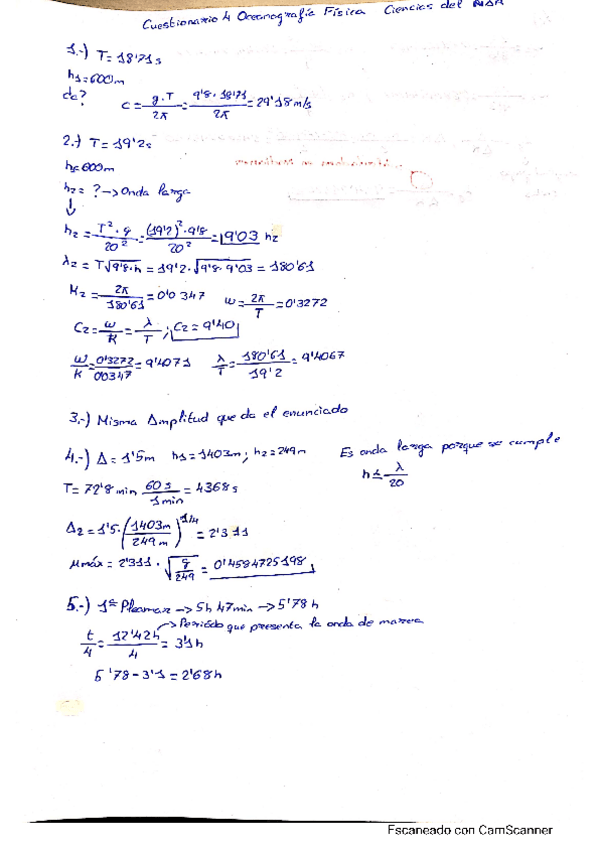 Cuestionario 4 Oceanografía Física Ciencias del MAR
1.-) T = 18'71 s
h1 = 600 m
dc? c = g·T/2π = 9'8·18'71/2π = 29'18 m/s
2.-) T = 19'2 s
h1 = 600 m
h2 = ? → Onda larga
↓
h2 = T²·g/20² = (19'2)²·9'8/20² = 9'03 h2
λ2 = T√9'8·h = 19'2·√9'8·9'03 = 180'61
K2 = 2π/180'61 = 0'0347 ω = 2π/T = 0'3272
C2 = ω/K = λ/T ; C2 = 9'40
ω/K = 0'3272/00347 = 9'4071 λ/T = 180'61/19'2 = 9'4067
3.-) Misma Amplitud que da el enunciado
4.-) A = 1'5 m h1 = 1403 m ; h2 = 249 m Es onda larga porque se cumple
h ≤ λ/20
T = 72'8 min 60 s/1 min = 4368 s
A2 = 1'5·(1403 m/249 m)^1/4 = 2'311
μmáx = 2'311·√g/249 = 0'4584725198
5.-) 1ª Pleamar → 5h 47min → 5'78 h
t/4 = 12'42 h/4 = 3'1 h → Periodo que presenta la onda de marea
5'78 - 3'1 = 2'68 h
Escaneado con CamScanner